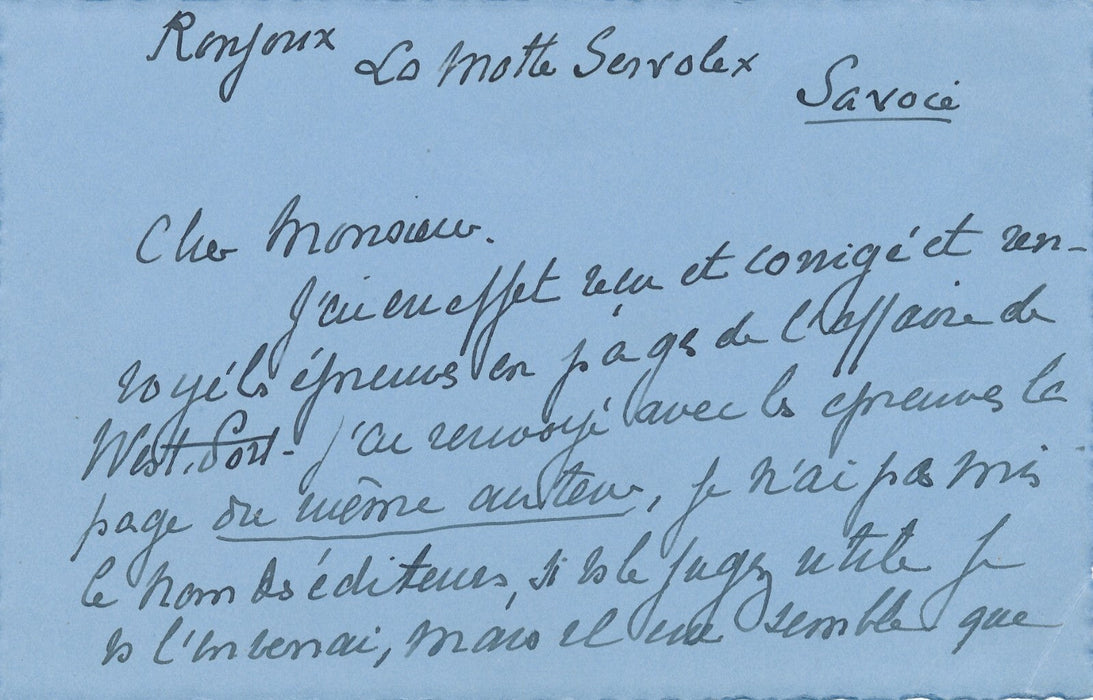 Ronjoux
La Motte Servolex
Savoie
Cher Monsieur.
J'ai en effet reçu et corrigé et ren-
voyé ls épreuves en pages de l'affaire de
West-Port - j'ai renvoyé avec ls épreuves la
page du même auteur, je n'ai pas mis
le nom ds éditeurs, si vs le jugez utile je
vs l'enverrai, mais il me semble que